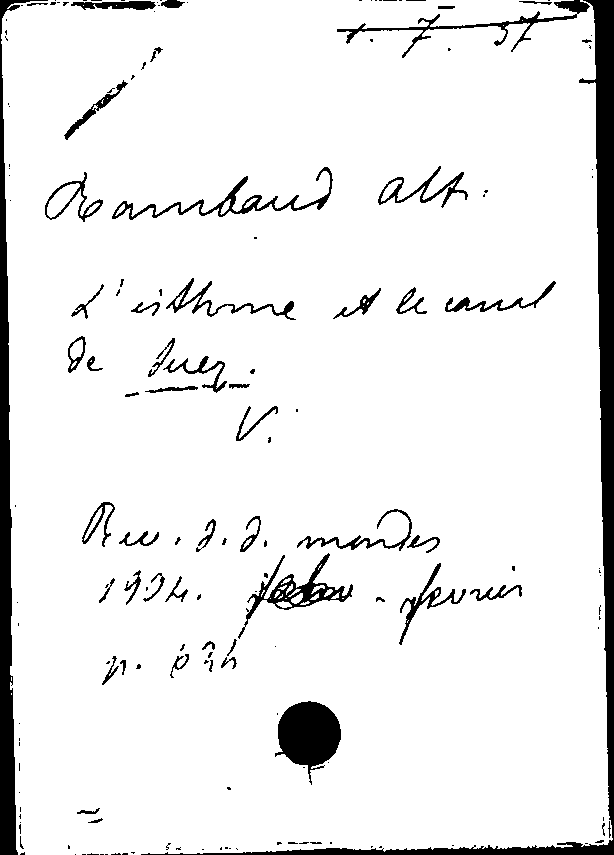 1. 7. 37
Rambaud Alf.
L'isthme et le canal
de Suez.
V.
Rev. d. d. mondes
1934. - février
p. 634